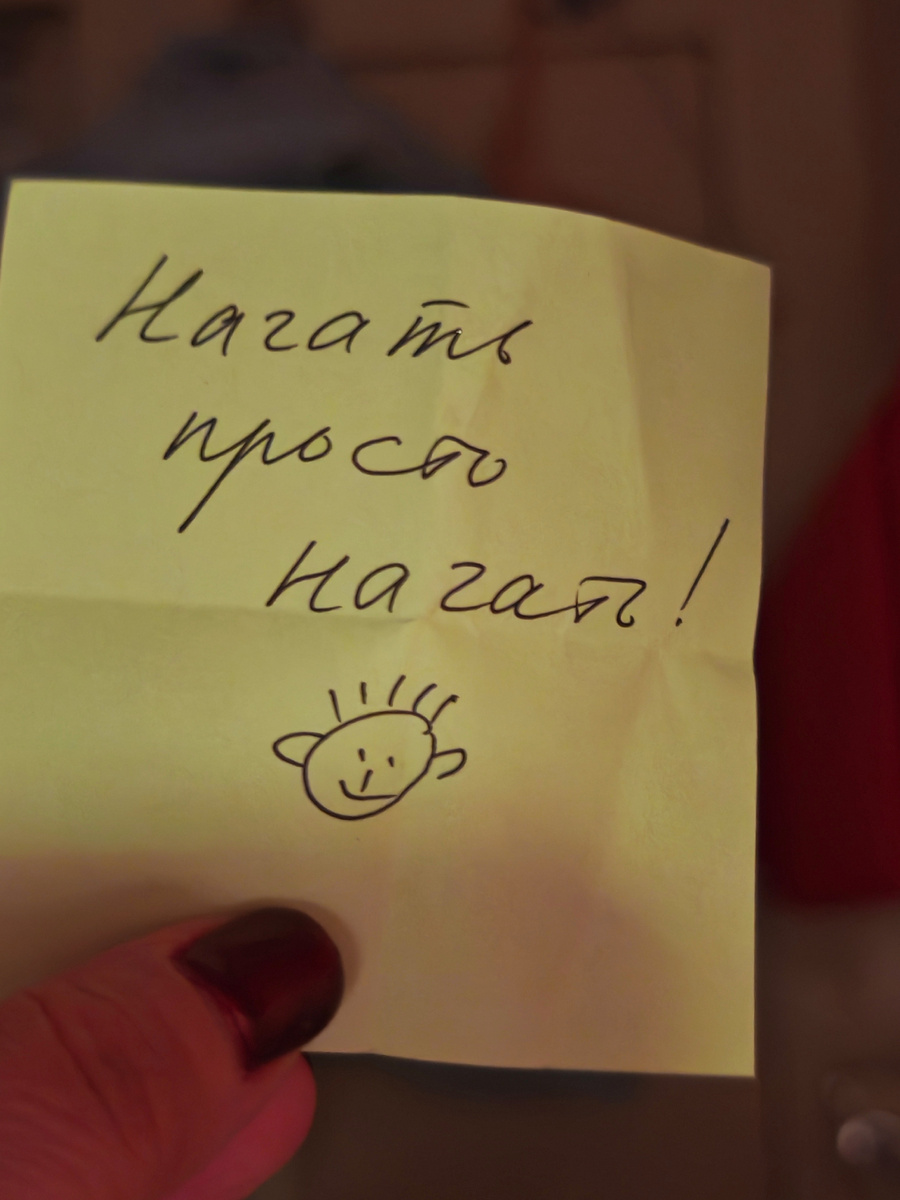 Начать
просто
начать!